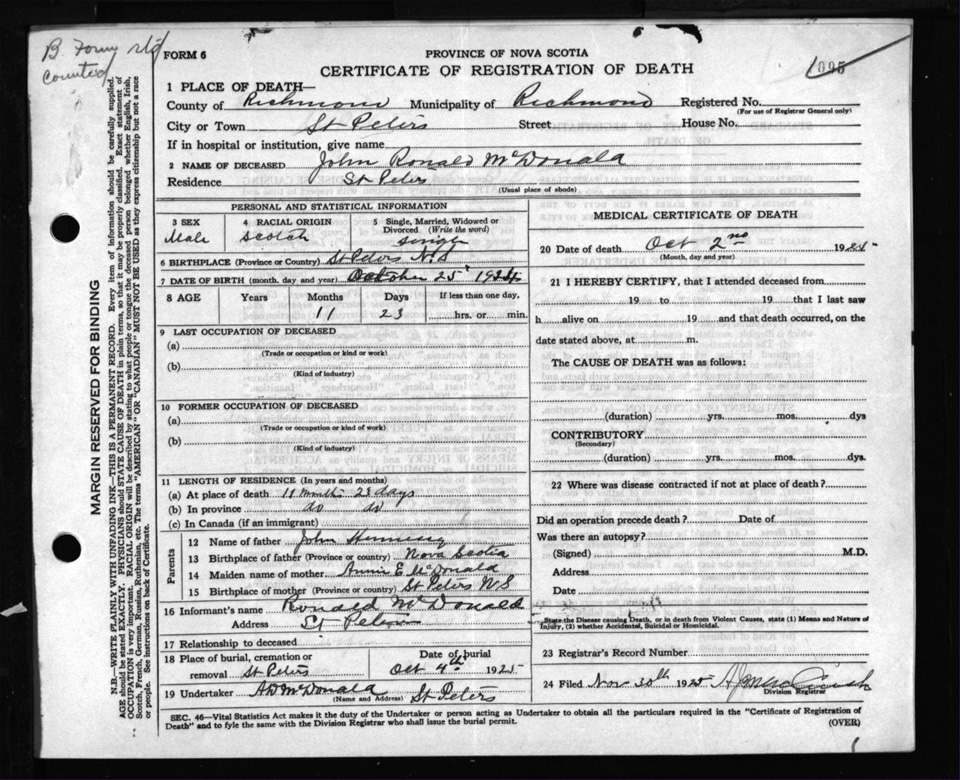 B Form
Counted
FORM 6
PROVINCE OF NOVA SCOTIA
CERTIFICATE OF REGISTRATION OF DEATH
095
1 PLACE OF DEATH—
County of Richmond Municipality of Richmond Registered No.
(For use of Registrar General only)
City or Town St Peters Street House No.
If in hospital or institution, give name
2 NAME OF DECEASED John Ronald McDonald
Residence St Peters
(Usual place of abode)
PERSONAL AND STATISTICAL INFORMATION
3 SEX 4 RACIAL ORIGIN 5 Single, Married, Widowed or Divorced (Write the word)
Male Scotch single
6 BIRTHPLACE (Province or Country) St Peters N.S
7 DATE OF BIRTH (month, day and year) October 25 1924
8 AGE Years Months Days If less than one day,
11 23 hrs. or min.
9 LAST OCCUPATION OF DECEASED
(a)
(Trade or occupation or kind or work)
(b)
(Kind of industry)
10 FORMER OCCUPATION OF DECEASED
(a)
(Trade or occupation or kind of work)
(b)
(Kind of industry)
11 LENGTH OF RESIDENCE (In years and months)
(a) At place of death 11 months 23 days
(b) In province do do
(c) In Canada (if an immigrant)
Parents
12 Name of father John Hennessy
13 Birthplace of father (Province or country) Nova Scotia
14 Maiden name of mother Annie E McDonald
15 Birthplace of mother (Province or country) St Peters N.S
16 Informant's name Ronald McDonald
Address St Peters
17 Relationship to deceased
18 Place of burial, cremation or Date of burial
removal St Peters Oct 4th 1925
19 Undertaker AD McDonald St Peters
(Name and Address)
MEDICAL CERTIFICATE OF DEATH
20 Date of death Oct 2nd 1925
(Month, day and year)
21 I HEREBY CERTIFY, that I attended deceased from
19 to 19 that I last saw
h alive on 19 and that death occurred, on the
date stated above, at m.
The CAUSE OF DEATH was as follows:
(duration) yrs. mos. dys
CONTRIBUTORY
(Secondary)
(duration) yrs. mos. dys.
22 Where was disease contracted if not at place of death?
Did an operation precede death? Date of
Was there an autopsy?
(Signed) M.D.
Address
Date
State the Disease causing Death, or in death from Violent Causes, state (1) Means and Nature of
Injury, (2) whether Accidental, Suicidal or Homicidal.
23 Registrar's Record Number
24 Filed Nov 30th 1925
Division Registrar
SEC. 46—Vital Statistics Act makes it the duty of the Undertaker or person acting as Undertaker to obtain all the particulars required in the "Certificate of Registration of
Death" and to fyle the same with the Division Registrar who shall issue the burial permit.
(OVER)
MARGIN RESERVED FOR BINDING
N.B.—WRITE PLAINLY WITH UNFADING INK—THIS IS A PERMANENT RECORD. Every item of information should be carefully supplied.
AGE should be stated EXACTLY. PHYSICIANS should STATE CAUSE OF DEATH in plain terms, so that it may be properly classified. Exact statement of
OCCUPATION is very important. RACIAL ORIGIN will be described by stating to what people or tongue the deceased person belonged whether English, Irish,
Scotch, French, German, Russian, Ruthenian, etc. The terms "AMERICAN" OR "CANADIAN" MUST NOT BE USED as they express citizenship but not a race
or people. See instructions on back of Certificate.